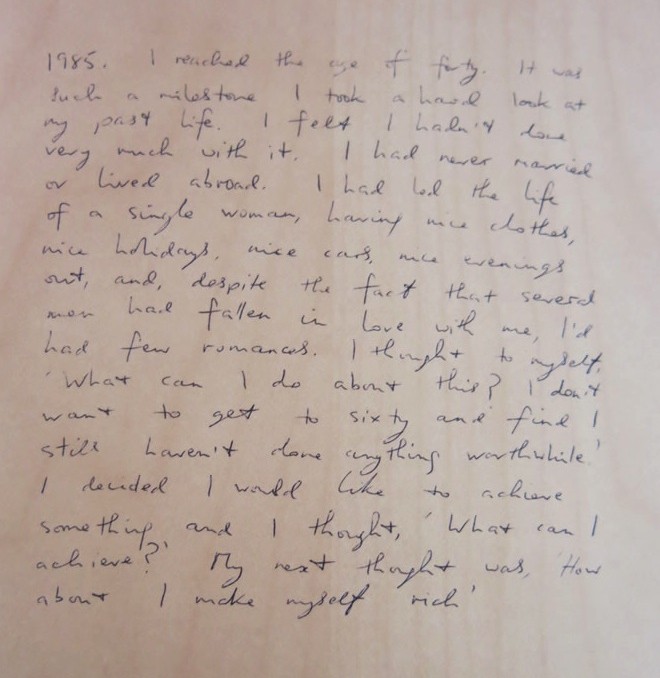 1985. I reached the age of forty. It was
such a milestone I took a hard look at
my past life. I felt I hadn't done
very much with it. I had never married
or lived abroad. I had led the life
of a single woman, having nice clothes,
nice holidays, nice cars, nice evenings
out, and, despite the fact that several
men had fallen in love with me, I'd
had few romances. I thought to myself,
'What can I do about this? I don't
want to get to sixty and find I
still haven't done anything worthwhile.'
I decided I would like to achieve
something, and I thought, 'What can I
achieve?' My next thought was, 'How
about I make myself rich'